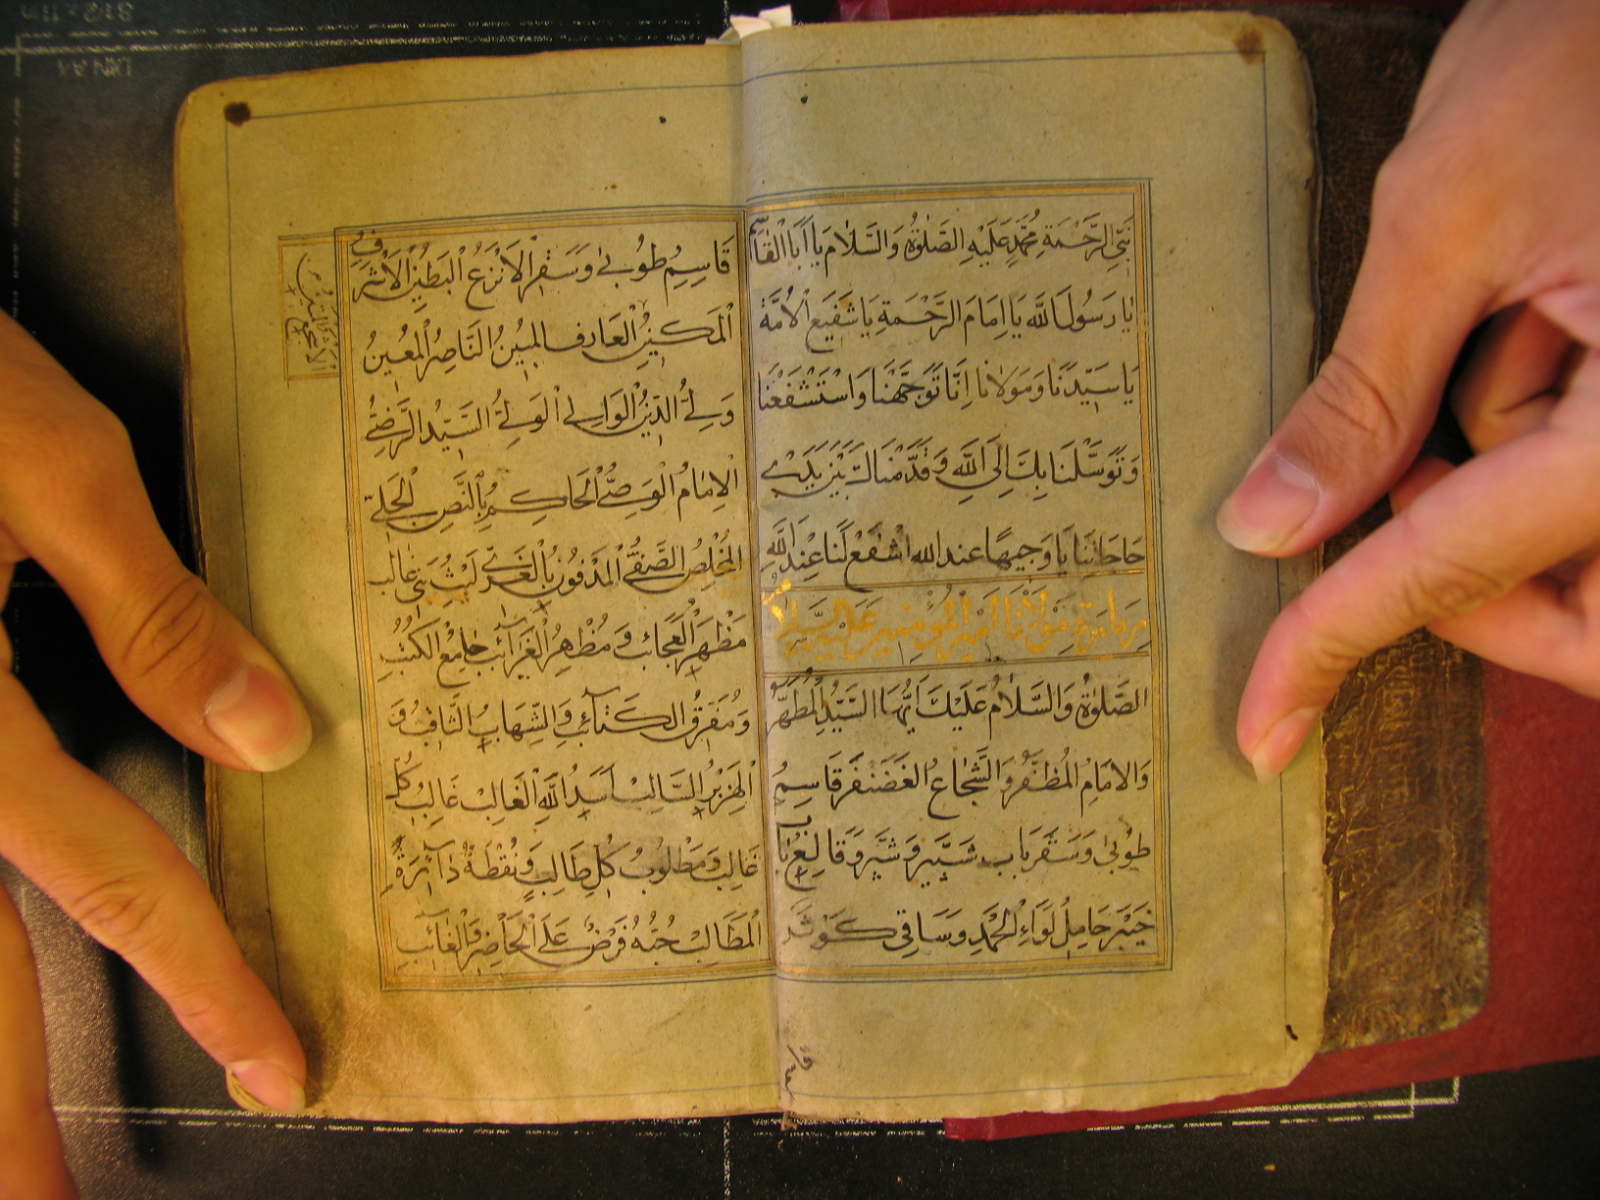 نَبِيِّ الرَّحْمَةِ مُحَمَّدٍ عَلَيْهِ الصَّلٰوةُ وَالسَّلَامُ يَا اَبَا الْقَاسِمِ
يَا رَسُولَ اللّٰهِ يَا اِمَامَ الرَّحْمَةِ يَا شَفِيعَ الْاُمَّةِ
يَا سَيِّدَنَا وَمَوْلَانَا اِنَّا تَوَجَّهْنَا وَاسْتَشْفَعْنَا
وَتَوَسَّلْنَا بِكَ اِلَى اللّٰهِ وَقَدَّمْنَاكَ بَيْنَ يَدَيْ
حَاجَاتِنَا يَا وَجِيهًا عِنْدَ اللّٰهِ اشْفَعْ لَنَا عِنْدَ اللّٰهِ
مَوْلَانَا اَمِيرُ الْمُؤْمِنِينَ عَلَيْهِ السَّلَامُ
الصَّلٰوةُ وَالسَّلَامُ عَلَيْكَ اَيُّهَا السَّيِّدُ الْمُطَهَّرُ
وَالْاِمَامِ الْمُظَفَّرِ وَالشُّجَاعُ الْغَضَنْفَرِ قَاسِمُ
طُوبٰى وَسَقَرَ بَابِ شَبِيرٍ وَشَبَّرٍ وَقَالِعُ بَابِ
خَيْبَرَ حَامِلُ لِوَاءِ الْحَمْدِ وَسَاقِي كَوْثَرَ
قَاسِمُ طُوبٰى وَسَقَرَ الْاَنْزَعُ الْبَطِينُ الْاَشْرَفُ
الْمَكِينُ الْعَارِفُ الْمُبِينُ النَّاصِرُ الْمُعِينُ
وَلِيُّ الدِّينُ الْوَالِي الْوَلِيُّ السَّيِّدُ الرَّضِيُّ
الْاِمَامُ الْوَصِيُّ الْحَاكِمُ بِالنَّصِّ الْجَلِيِّ
الْمُخْلِصُ الصَّفِيُّ الْمَدْفُونُ بِالْغَرِيِّ لَيْثُ بَنِي غَالِبٍ
مَظْهَرُ الْعَجَائِبِ وَمُظْهِرُ الْغَرَآئِبِ جَامِعُ الْكُتُبِ
وَمُفَرِّقُ الْكَتَآئِبِ وَالشِّهَابُ الثَّاقِبُ وَ
الْهِزَبْرُ السَّالِبُ اَسَدُ اللّٰهِ الْغَالِبُ غَالِبُ كُلِّ
غَالِبٍ وَمَطْلُوبُ كُلِّ طَالِبٍ وَنُقْطَةُ دَآئِرَةِ
الْمَطَالِبِ حُبُّهُ فَرْضٌ عَلَى الْحَاضِرِ وَالْغَآئِبِ